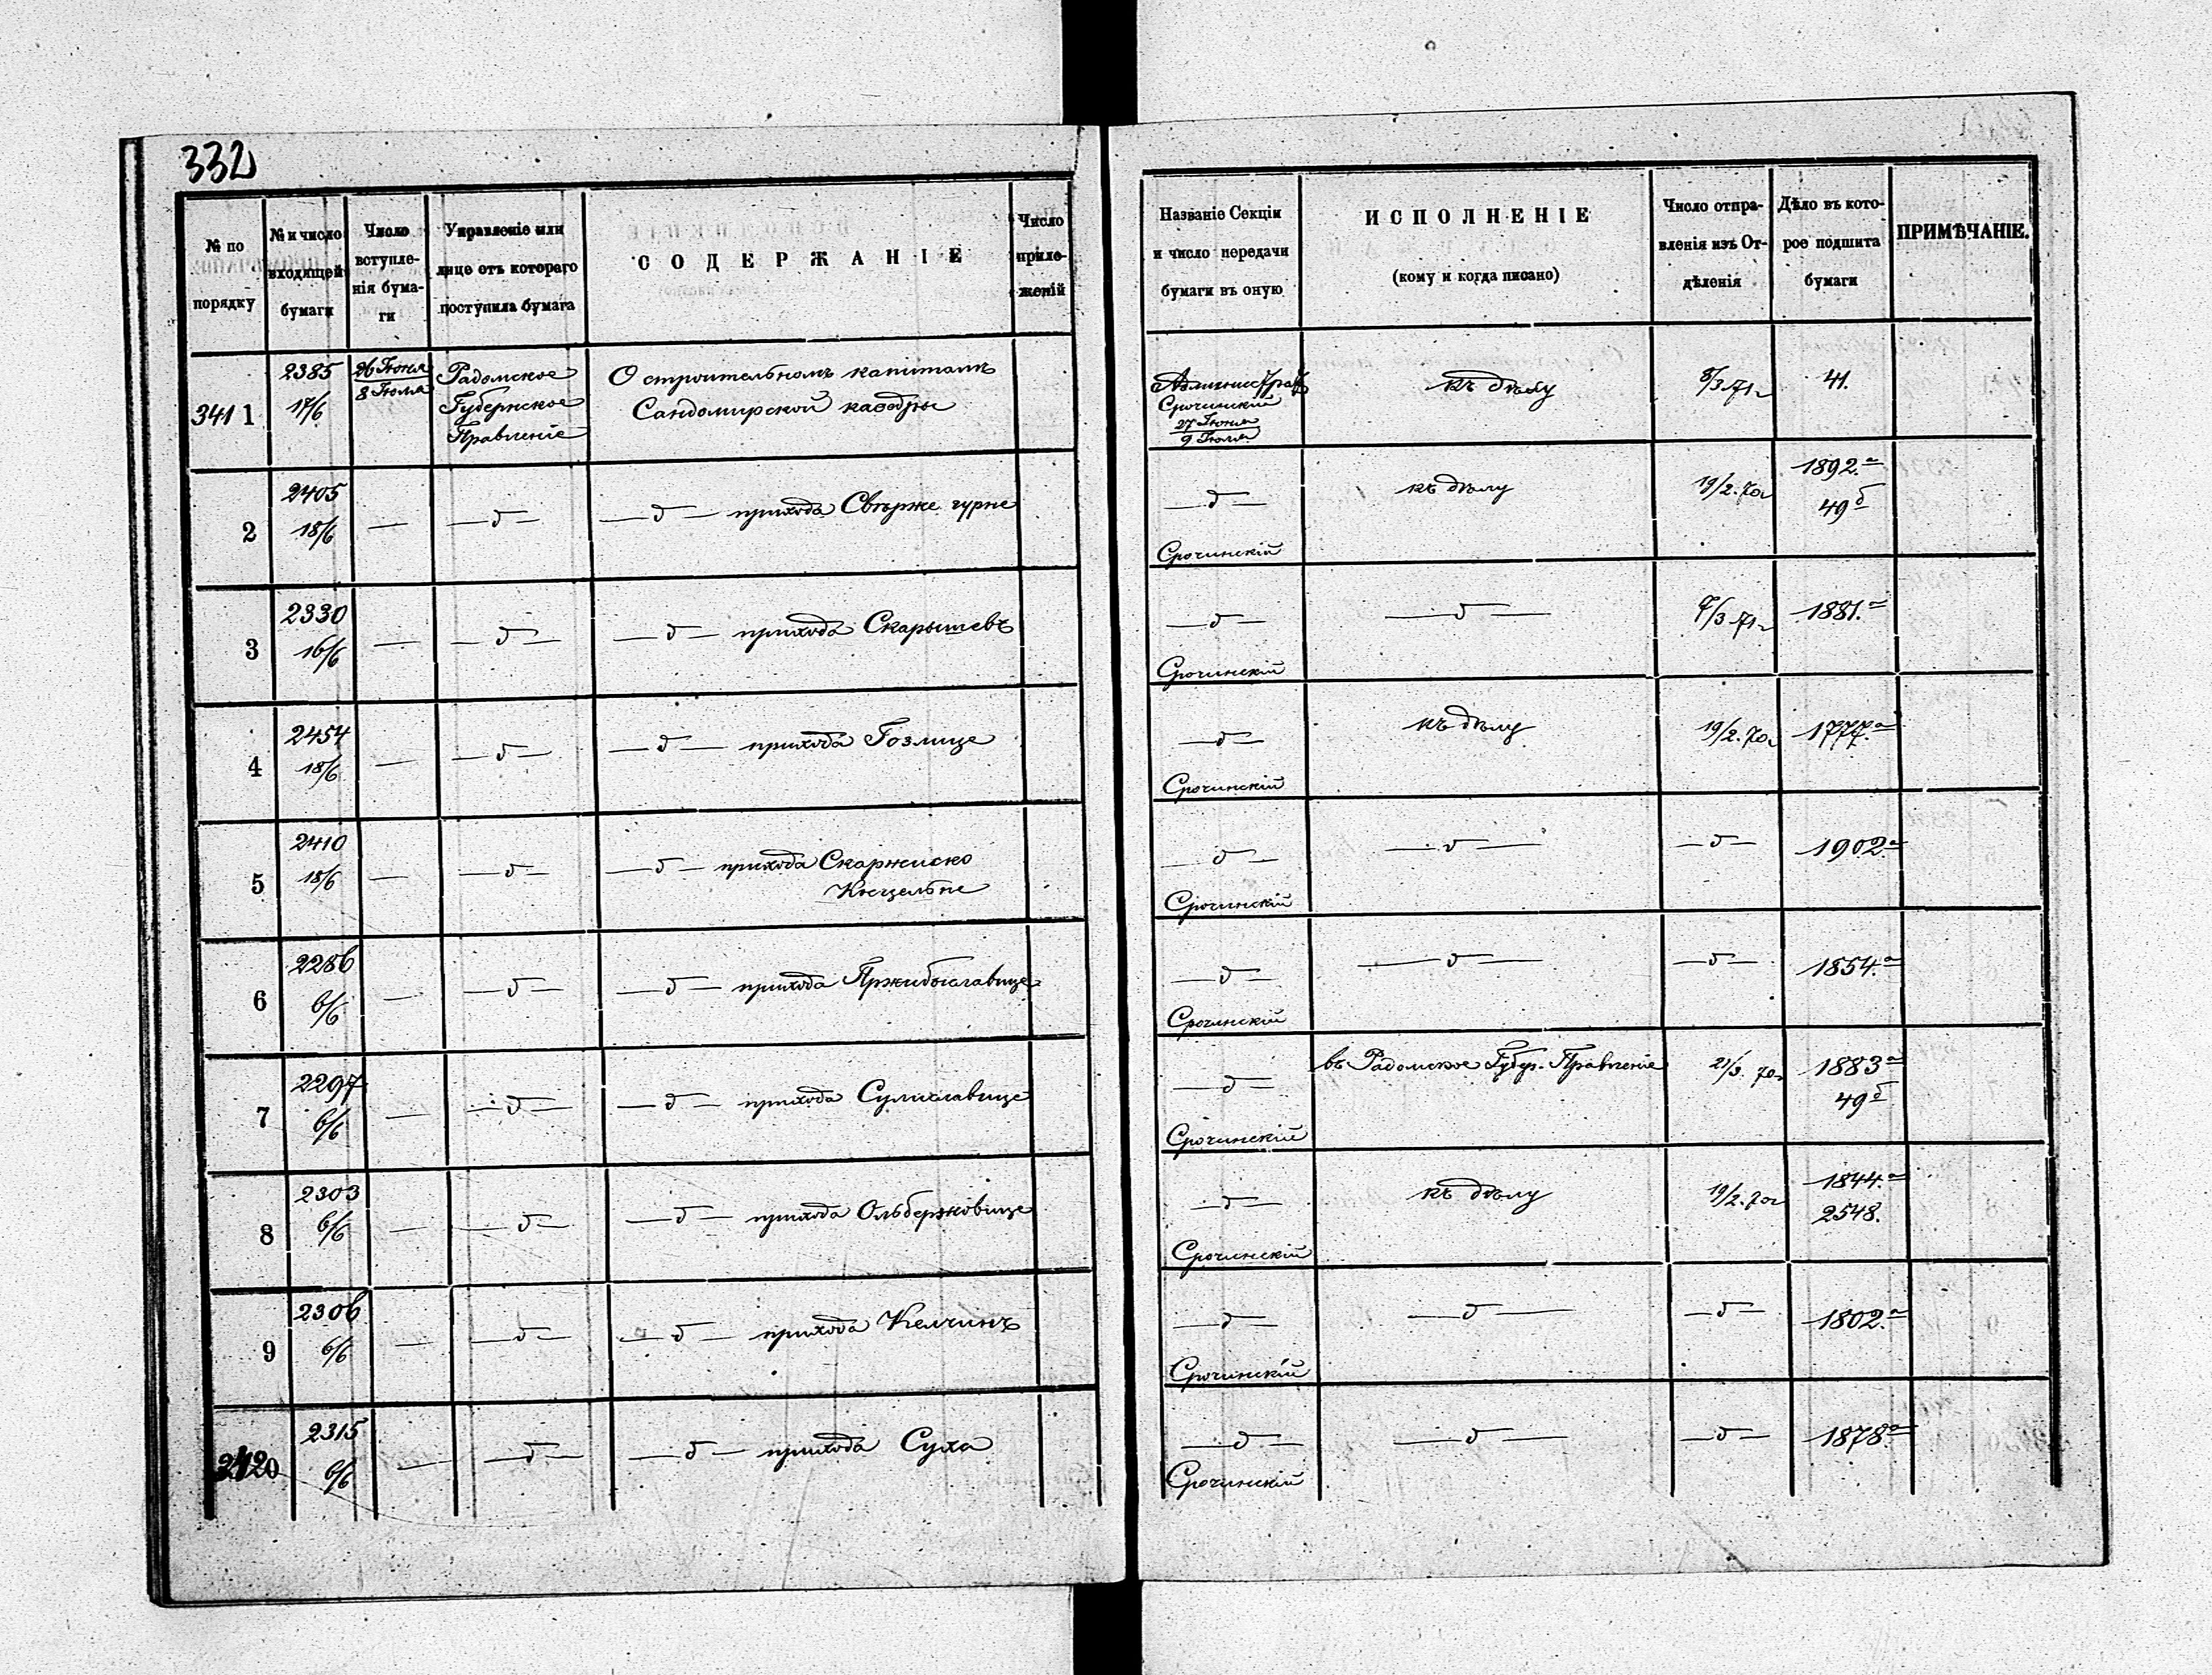 332
№ по порядку
№ и число входящей бумаги
Число вступле-
нія бума-
ги
Управленіе или
лице отъ котораго
поступила бумага
СОДЕРЖАНІЕ
Число
прило-
женій
Названіе Секціи
и число передачи
бумаги въ оную
ИСПОЛНЕНІЕ
(кому и когда писано)
Число отпра-
вленія изъ От-
дѣленія
Дѣло въ кото-
рое подшита
бумаги
ПРИМѢЧАНІЕ.
3411
2385
17/6
26 Іюня
8 Іюля
Радомское
Губернское
Правленіе
О строительномъ капиталѣ
Сандомирской каѳедры
Срочинскій
27 Іюня
9 Іюля
къ дѣлу
8/3 71 г
41.
2
2405
18/6
—
— д —
— д — прихода Свѣрже гурне
— д —
Срочинскій
къ дѣлу
19/2. 70 г
1892.а
49 б
3
2330
16/6
—
— д —
— д — прихода Скарышевъ
— д —
Срочинскій
— д —
7/3 71 г
1881.а
4
2454
18/6
—
— д —
— д — прихода Гозлице
— д —
Срочинскій
къ дѣлу
19/2. 70 г
1777.а
5
2410
18/6
—
— д —
— д — прихода Скаржиско
Косцельне
— д —
Срочинскій
— д —
— д —
1902.а
6
2286
6/6
—
— д —
— д — прихода Пржибыславице
— д —
Срочинскій
— д —
— д —
1854.а
7
2297
6/6
—
— д —
— д — прихода Сулиславице
— д —
Срочинскій
въ Радомское Губер. Правленіе
21/3. 70 г
1883 а
49 б
8
2303
6/6
—
— д —
— д — прихода Ольбержовице
— д —
Срочинскій
къ дѣлу
19/2. 70 г
1844.а
2548.
9
2306
6/6
—
— д —
— д — прихода Келчинъ
— д —
Срочинскій
— д —
— д —
1802.а
3420
2315
6/6
—
— д —
— д — прихода Суха
— д —
Срочинскій
— д —
— д —
1878.а